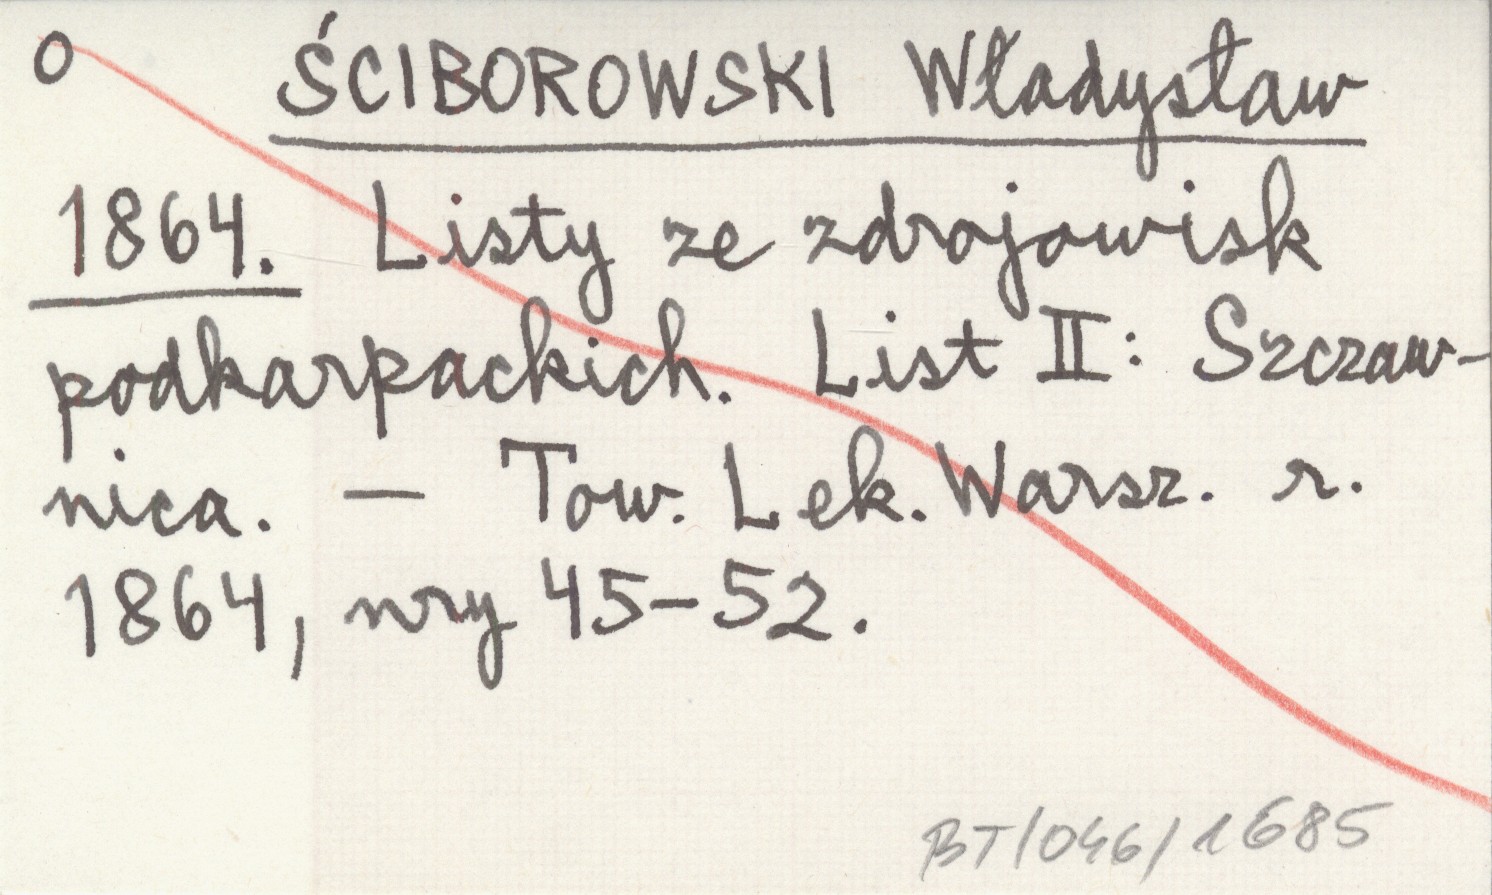 o ŚCIBOROWSKI Władysław
1864. Listy ze zdrojowisk
podkarpackich. List II: Szczaw-
nica. — Tow. Lek. Warsz. r.
1864, nry 45-52.
BT/046/1685